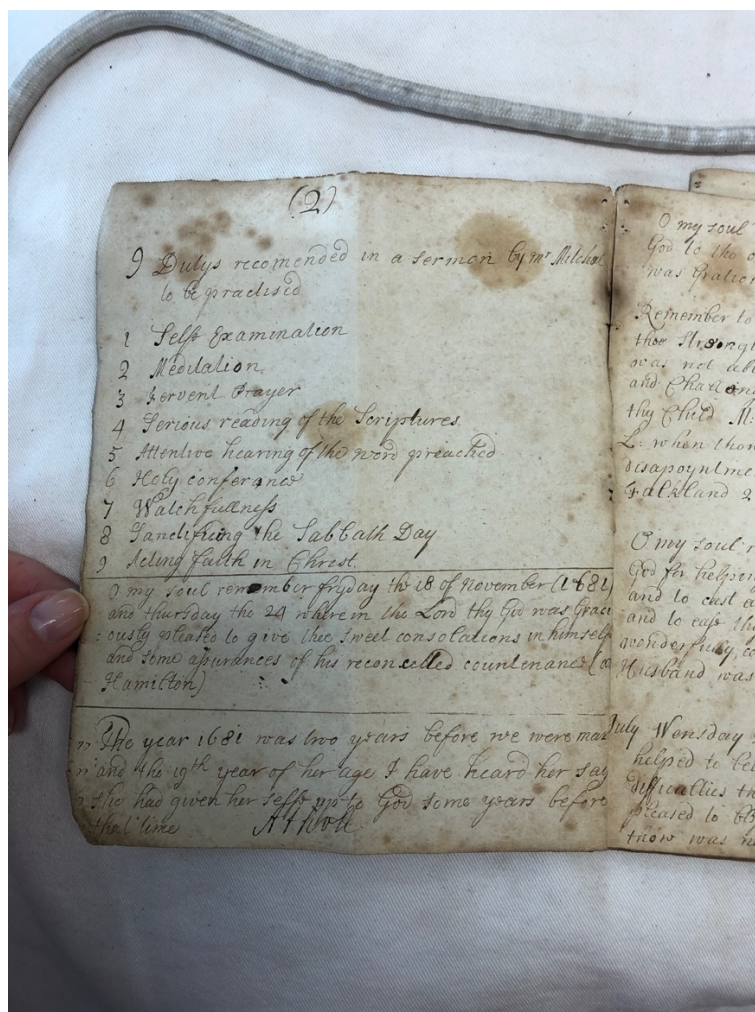 (2)
9 Dutys recomended in a sermon by mr Mitchel
to be practised
1 Self Examination
2 Meditation
3 Fervent Prayer
4 Serious reading of the Scriptures
5 Attentive hearing of the word preached
6 Holy conferance
7 Watchfullness
8 Sanctifieing the Sabbath Day
9 Acting faith in Christ.
O my soul remember fryday the 18 of November (1681)
and thursday the 24 wherein the Lord thy God was Graci
:ously pleased to give thee sweet consolations in himself
and some assurances of his reconcelled countenance (
Hamilton)
The year 1681 was two years before we were mar
and the 19th year of her age I have heard her say
she had given her selfe up to God some years before
that time Atholl
O my soul
God to the
was Gratiou
Remember
thee strong
was not abl
and Chal
thy Child M.
L: when thou
disapoyntme
Falkland 2
O my soul r
God for helpin
and to cast a
and to ease th
wonderfuly co
Husband was
July Wensday
helped to be
difficulties th
pleased to bl
know was n